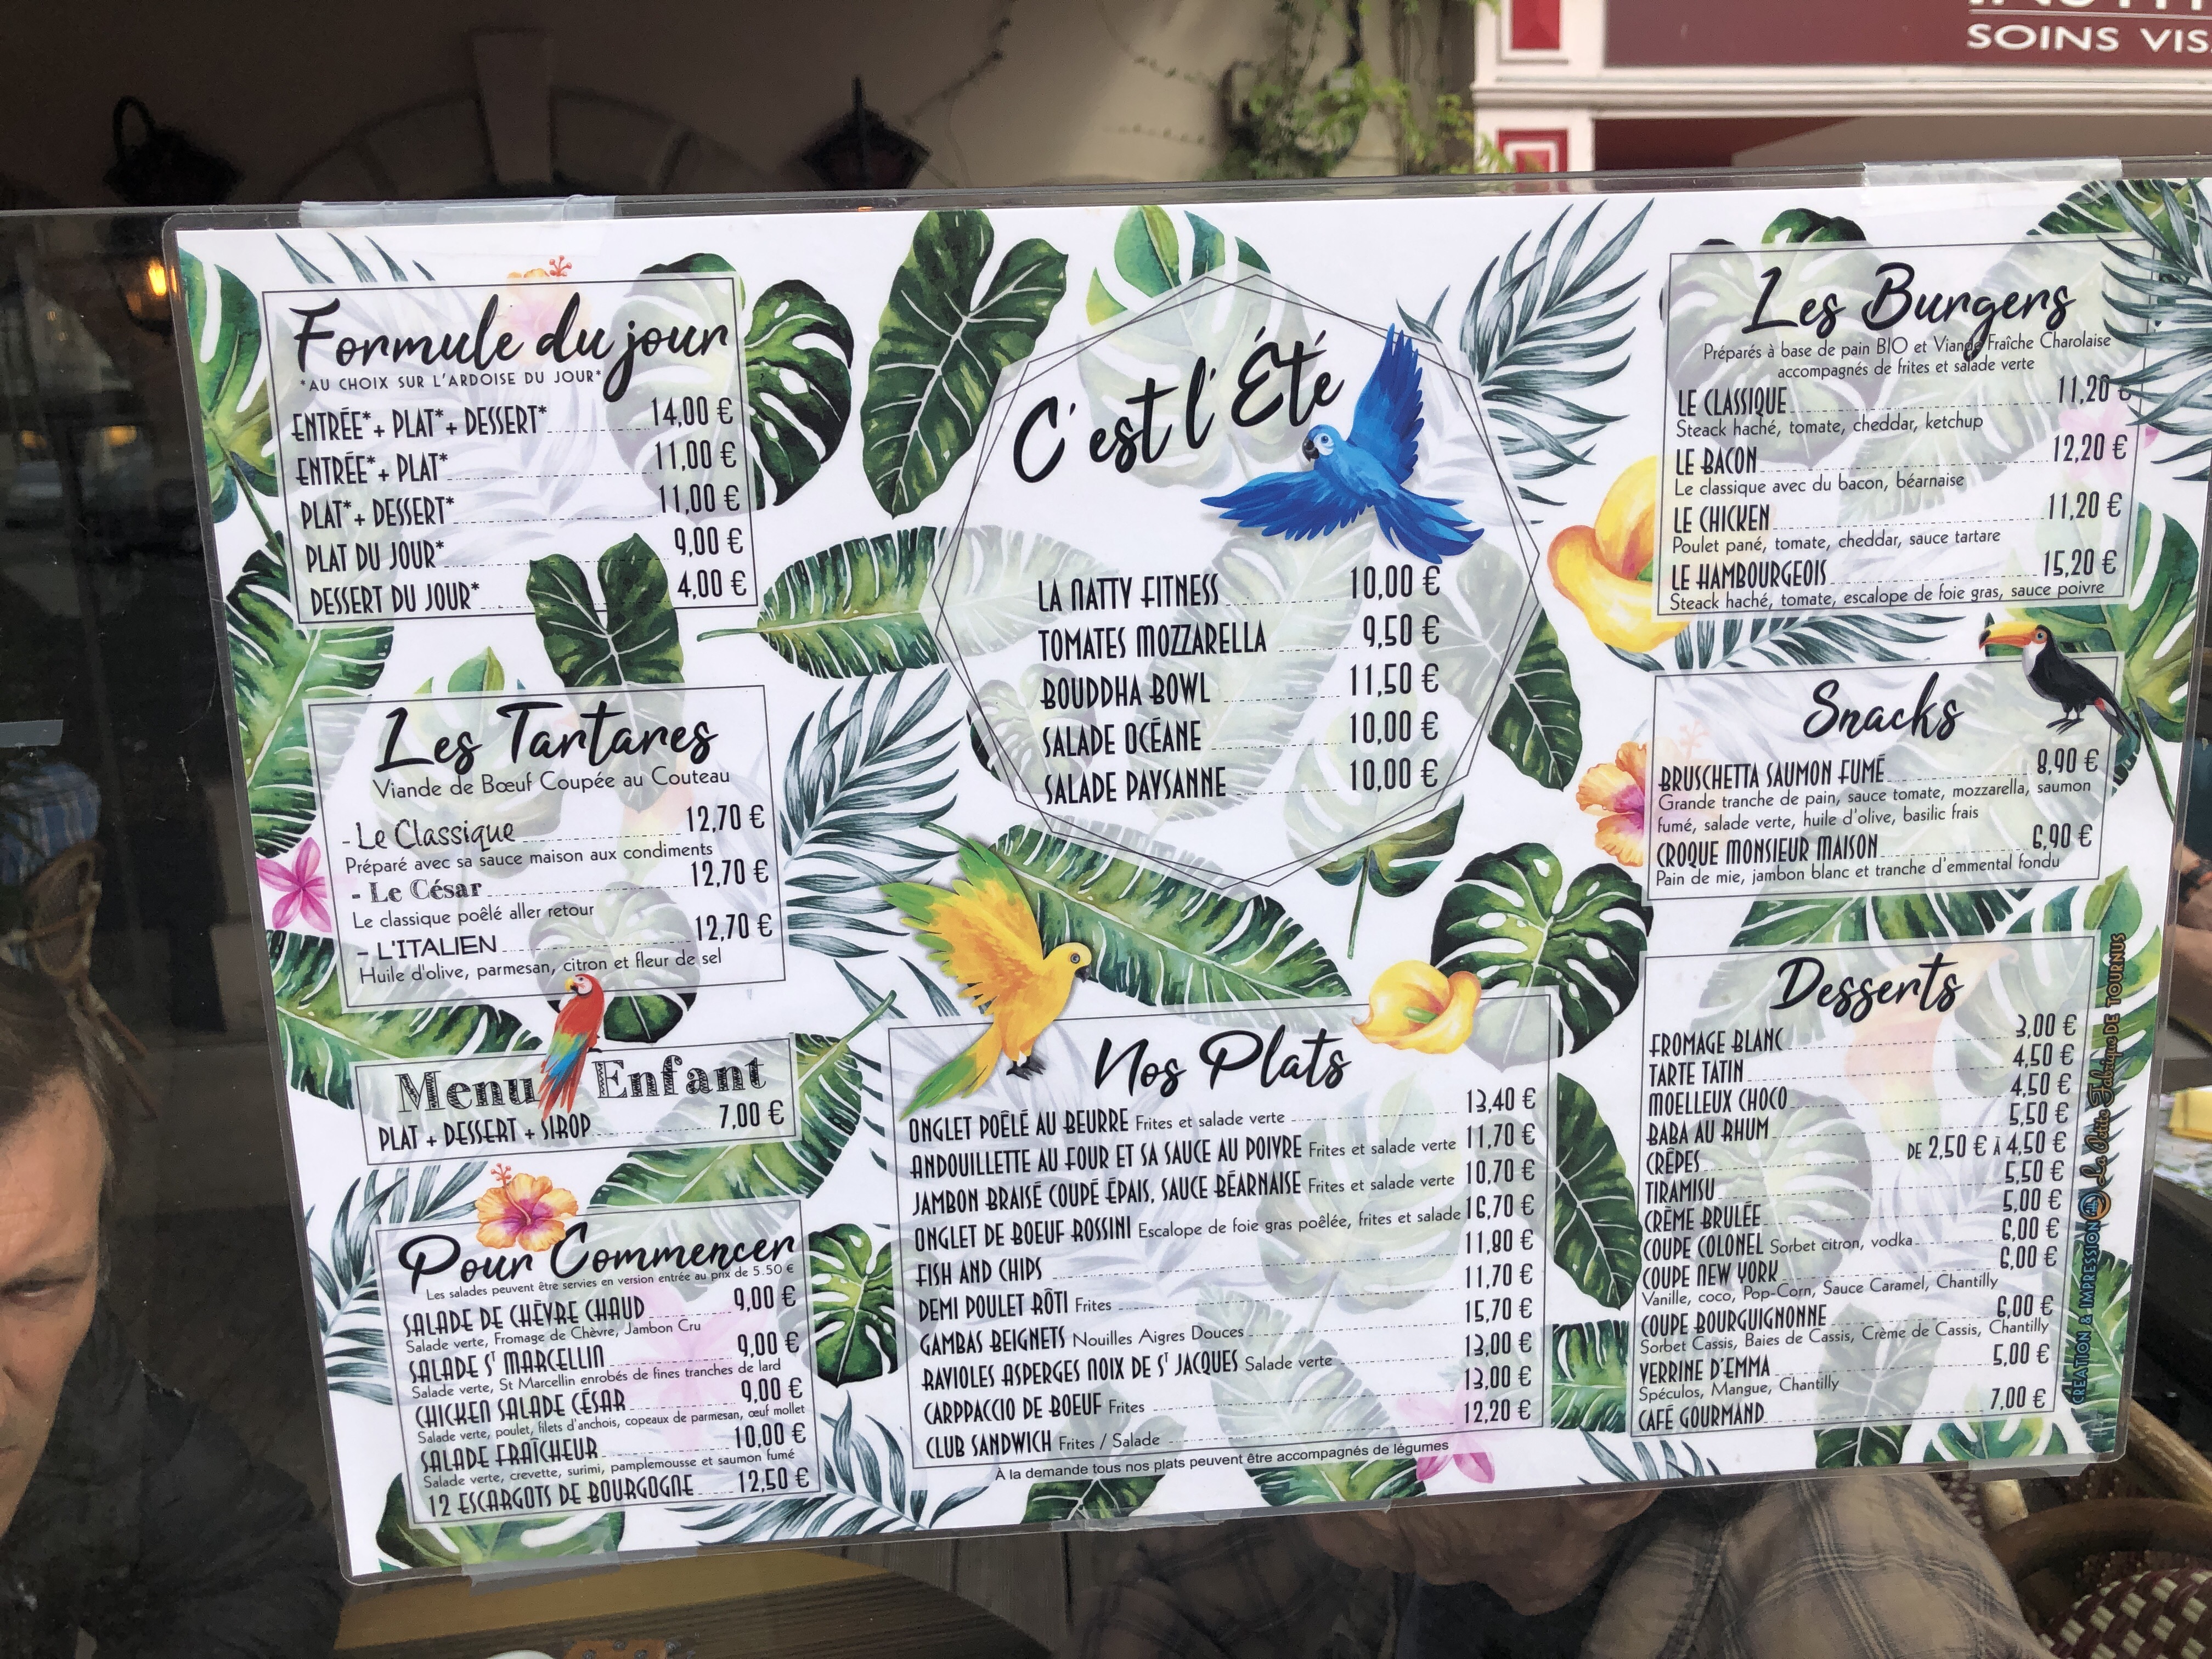 SOINS VIS
Formule du jour
*AU CHOIX SUR L'ARDOISE DU JOUR*
ENTRÉE* + PLAT* + DESSERT* 14,00 €
ENTRÉE* + PLAT* 11,00 €
PLAT* + DESSERT* 11,00 €
PLAT DU JOUR* 9,00 €
DESSERT DU JOUR* 4,00 €
Les Tartares
Viande de Bœuf Coupée au Couteau
- Le Classique 12,70 €
Préparé avec sa sauce maison aux condiments
- Le César 12,70 €
Le classique poêlé aller retour
- L'ITALIEN 12,70 €
Huile d'olive, parmesan, citron et fleur de sel
Menu Enfant
PLAT + DESSERT + SIROP 7,00 €
Pour Commencer
Les salades peuvent être servies en version entrée au prix de 5.50 €
SALADE DE CHÈVRE CHAUD 9,00 €
Salade verte, Fromage de Chèvre, Jambon Cru
SALADE ST MARCELLIN 9,00 €
Salade verte, St Marcellin enrobés de fines tranches de lard
CHICKEN SALADE CÉSAR 9,00 €
Salade verte, poulet, filets d'anchois, copeaux de parmesan, œuf mollet
SALADE FRAÎCHEUR 10,00 €
Salade verte, crevette, surimi, pamplemousse et saumon fumé
12 ESCARGOTS DE BOURGOGNE 12,50 €
C'est l'Été
LA NATTY FITNESS 10,00 €
TOMATES MOZZARELLA 9,50 €
BOUDDHA BOWL 11,50 €
SALADE OCÉANE 10,00 €
SALADE PAYSANNE 10,00 €
Nos Plats
ONGLET POÊLÉ AU BEURRE Frites et salade verte 13,40 €
ANDOUILLETTE AU FOUR ET SA SAUCE AU POIVRE Frites et salade verte 11,70 €
JAMBON BRAISÉ COUPÉ ÉPAIS, SAUCE BÉARNAISE Frites et salade verte 10,70 €
ONGLET DE BOEUF ROSSINI Escalope de foie gras poêlée, frites et salade 16,70 €
FISH AND CHIPS 11,80 €
DEMI POULET RÔTI Frites 11,70 €
GAMBAS BEIGNETS Nouilles Aigres Douces 15,70 €
RAVIOLES ASPERGES NOIX DE ST JACQUES Salade verte 13,00 €
CARPPACCIO DE BOEUF Frites 13,00 €
CLUB SANDWICH Frites / Salade 12,20 €
À la demande tous nos plats peuvent être accompagnés de légumes
Les Burgers
Préparés à base de pain BIO et Viande Fraîche Charolaise
accompagnés de frites et salade verte
LE CLASSIQUE 11,20 €
Steack haché, tomate, cheddar, ketchup
LE BACON 12,20 €
Le classique avec du bacon, béarnaise
LE CHICKEN 11,20 €
Poulet pané, tomate, cheddar, sauce tartare
LE HAMBOURGEOIS 15,20 €
Steack haché, tomate, escalope de foie gras, sauce poivre
Snacks
BRUSCHETTA SAUMON FUMÉ 8,90 €
Grande tranche de pain, sauce tomate, mozzarella, saumon
fumé, salade verte, huile d'olive, basilic frais
CROQUE MONSIEUR MAISON 6,90 €
Pain de mie, jambon blanc et tranche d'emmental fondu
Desserts
FROMAGE BLANC 3,00 €
TARTE TATIN 4,50 €
MOELLEUX CHOCO 4,50 €
BABA AU RHUM 5,50 €
CRÊPES DE 2,50 € À 4,50 €
TIRAMISU 5,50 €
CRÈME BRULÉE 5,00 €
COUPE COLONEL Sorbet citron, vodka 6,00 €
COUPE NEW YORK 6,00 €
Vanille, coco, Pop-Corn, Sauce Caramel, Chantilly
COUPE BOURGUIGNONNE 6,00 €
Sorbet Cassis, Baies de Cassis, Crème de Cassis, Chantilly
VERRINE D'EMMA 5,00 €
Spéculos, Mangue, Chantilly
CAFÉ GOURMAND 7,00 €
CRÉATION & IMPRESSION La Petite Fabrique DE TOURNUS